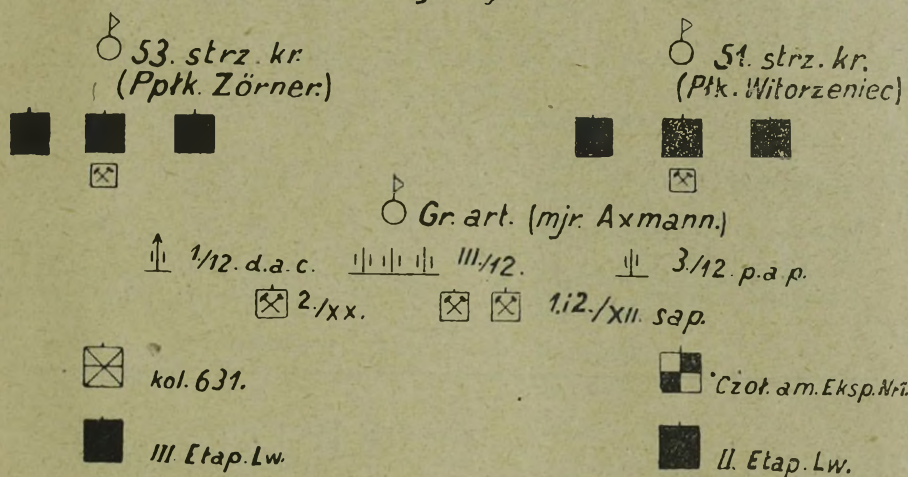 53. strz. kr.
(Ppłk. Zörner.)
51. strz. kr.
(Płk. Witorzeniec)
Gr. art. (mjr. Axmann.)
1/12. d.a.c.
III./12.
3./12. p.a.p.
2./XX.
1.i2./XII. sap.
kol. 631.
Czoł. am. Eksp. Nr1.
III. Etap. Lw.
II. Etap. Lw.